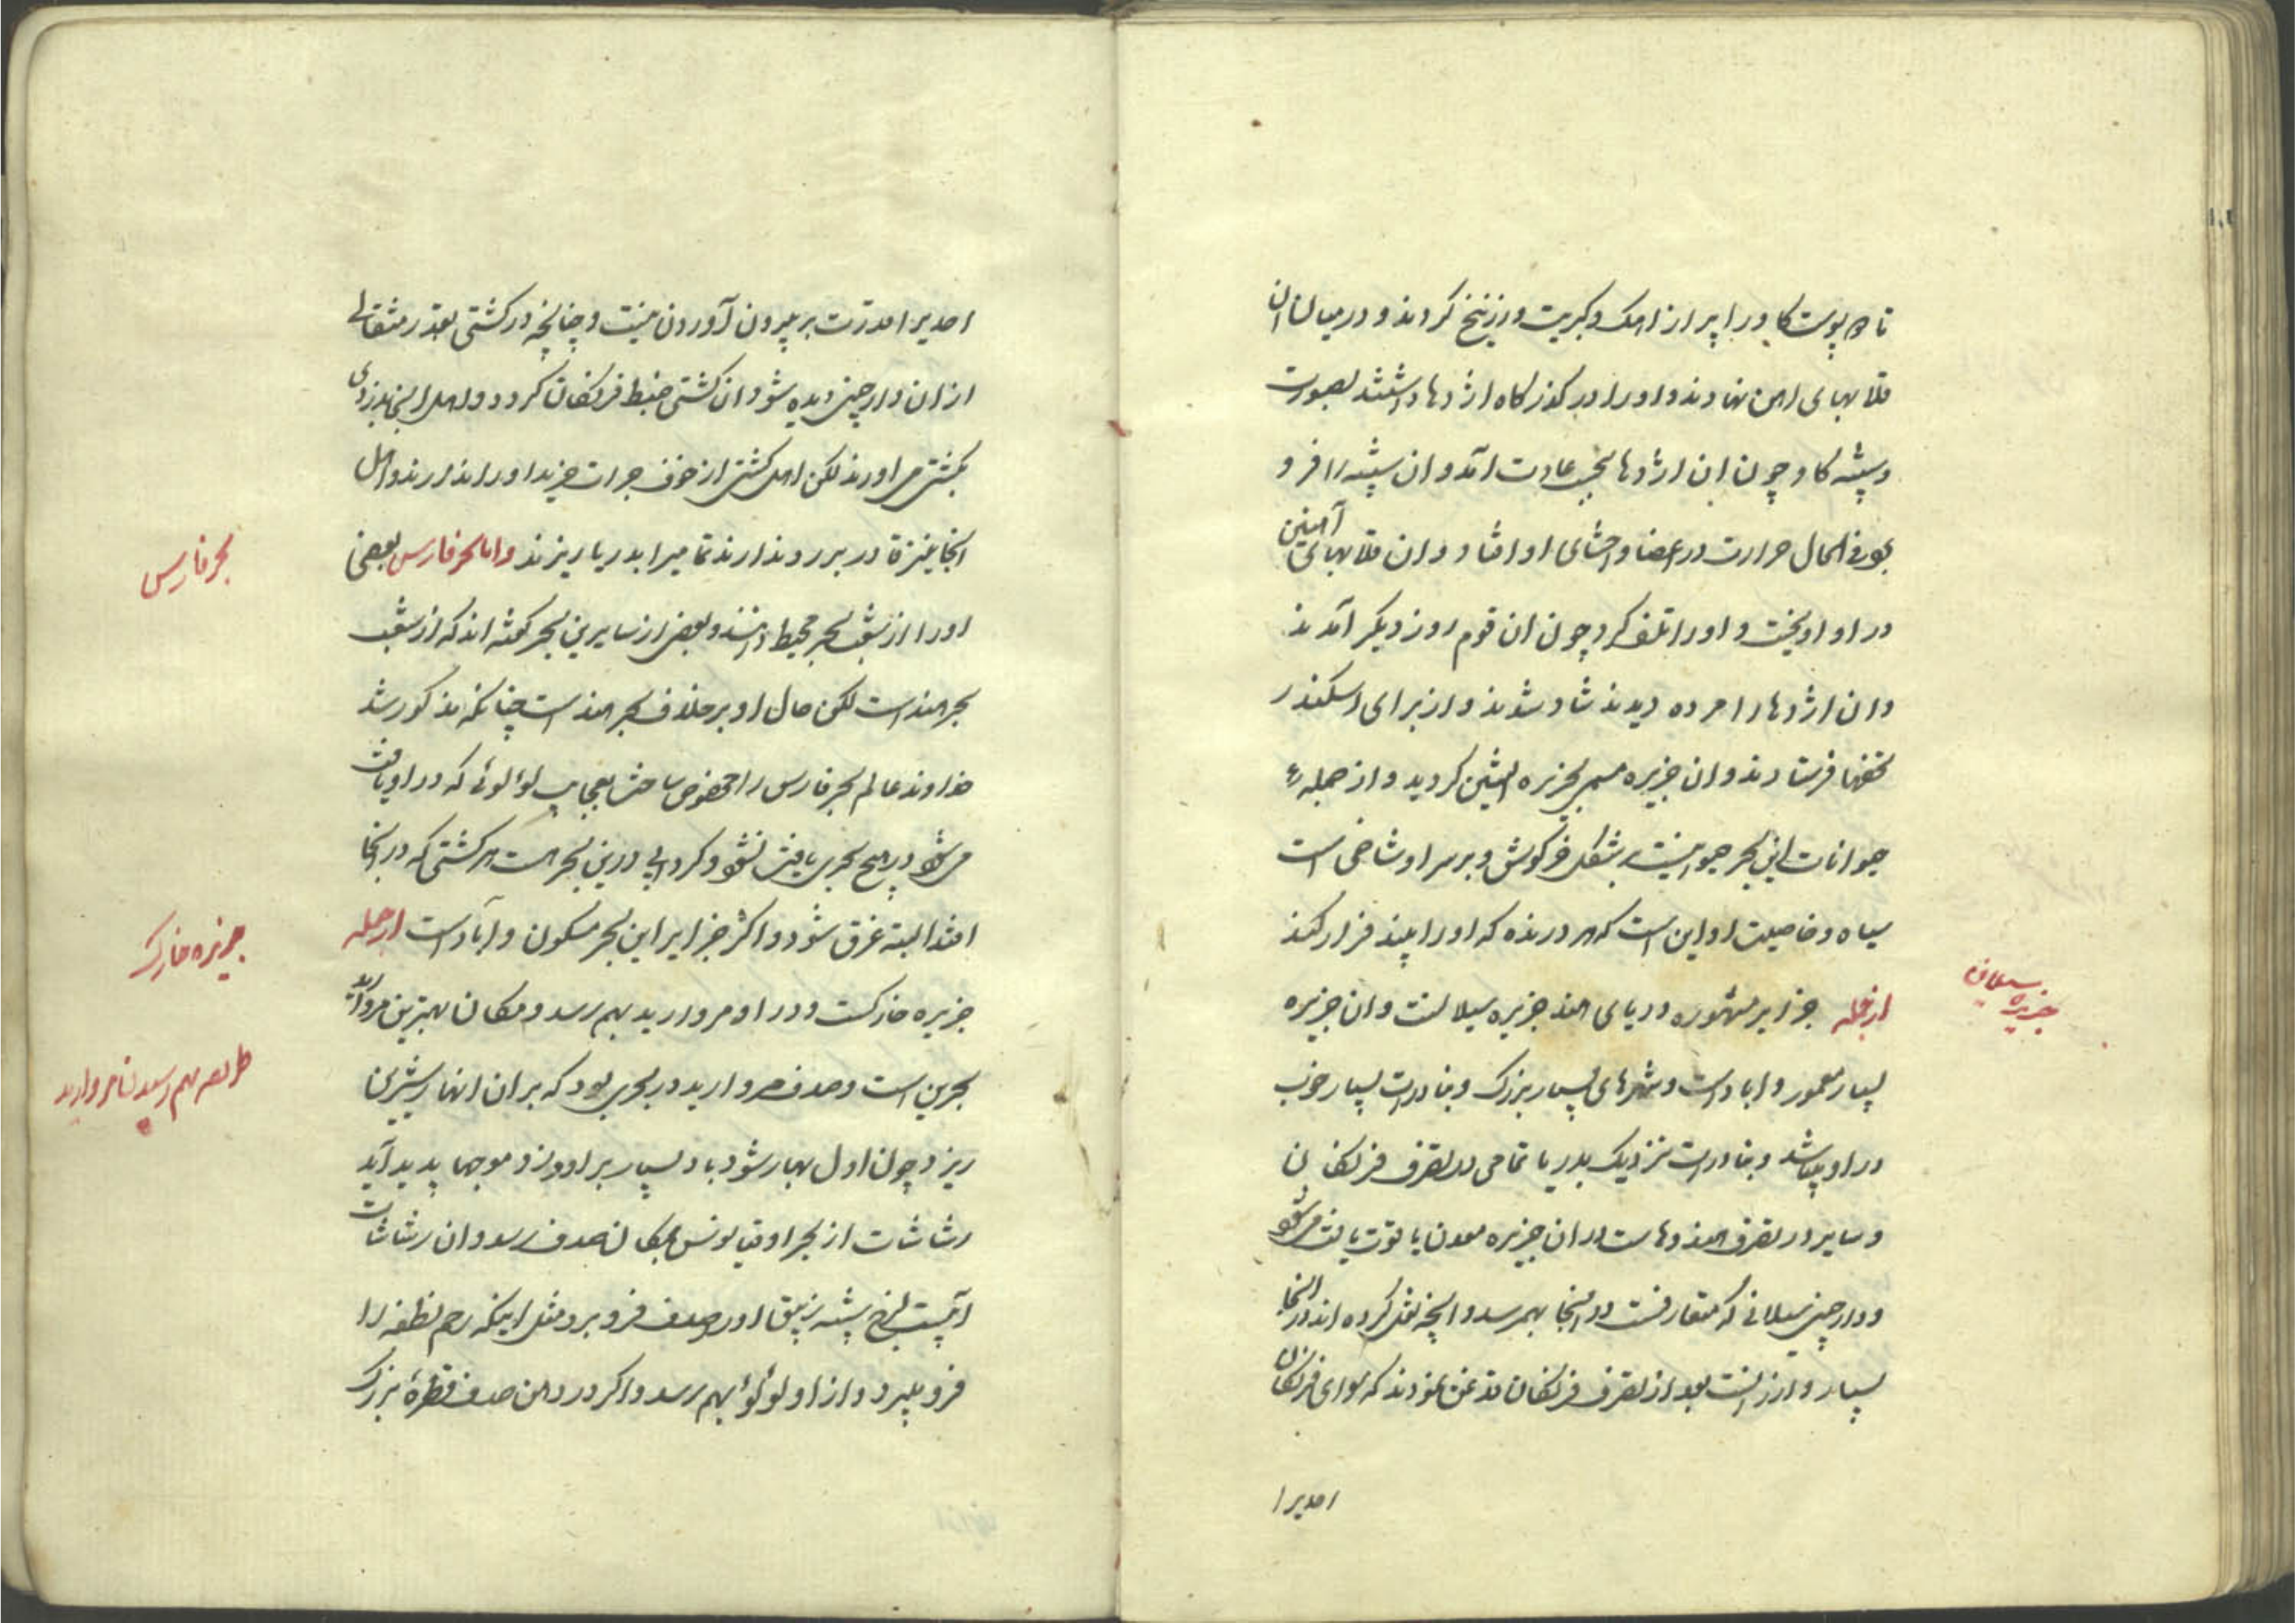 تا دو پوست کاو را پر از اهک و کبریت و زرنیخ کردند و در میان آن
قلابهای اهن نهادند و او را در کذرکاه اژدها داشتند بصورت
دسته کاو چون ان اژدها بحسب عادت آمد و ان را فرو
فی الحال حرارت در اعضا و احشای او افتاد و ان قلابهای آهنین
در او اویخت و او را تلف کرد چون ان قوم روز دیکر آمدند
و ان اژدها را مرده دیدند شاد شدند و از برای اسکندر
تحفها فرستادند و ان جزیره مسمی بجزیره کردید و از جمله
حیوانات این بحر حیوانیست بشکل خرکوش و بر سر او شاخی است
سیاه و خاصیت او این است که هر درنده که او را بیند فرار کند
ازجمله جزایر مشهوره دریای هند جزیره سیلانست و ان جزیره
بسیار معمور و اباد است و شهرهای بسیار بزرک و بنادرات بسیار خوب
در او میباشد و بنادرات نزدیک بدریا تمامی در تصرف فرنکان
و سایر در تصرف هندوهاست در ان جزیره معدن یاقوت یافت میشود
و دارچینی سیلانی که متعارفست در اینجا بهم رسد و انچه نقل کرده اند در انجا
بسیار و ارزانست بعد از تصرف فرنکان قدغن نمودند که سوای فرنکان
احدیرا
جزیره سیلان
احدیرا قدرت بر بیرون آوردن نیست و چنانچه در کشتی بقدر مثقالی
از ان دارچینی دیده شود ان کشتی ضبط فرنکان کردد و اهل اینجا بدزدی
بکشتی می اورند لکن اهل کشتی از خوف جرات خرید او را ندارند و اهل
انجا نیز قادر بر رد ندارند تمامیرا بدریا ریزند و اما بحر فارس بعضی
او را از شعب بحر محیط دانند و بعضی از سایرین بحر کفته اند که از شعب
بحر هند است لکن حال او بر خلاف بحر هند است چنانکه مذکور شد
خداوند عالم بحر فارس را مخصوص ساخت بعجایب لؤلوئی که در او یافت
می شود در هیچ بحری یافت نشود و کردابی درین بحر هست هر کشتی که در انجا
افتد البته غرق شود و اکثر جزایر این بحر مسکون و آباد است ازجمله
جزیره خارکست و در او مروارید بهم رسد و مکان بهترین مروارید
بحرین است و صدف مروارید در بحری بود که بر ان انهار شیرین
ریزد چون اول بهار شود باد بسیار بر او وزد و موجها پدید آید
رشاشات از بحر اوقیانوس بمکان صدف رسد و ان رشاشات
آبیست لزج شبه زیبق او را صدف فرو برد مثل اینکه رحم نطفه را
فرو میبرد و از او لؤلؤ بهم رسد و اکر در دهن صدف قطرۀ بزرک
بحر فارس
جزیره خارک
طریقه بهم رسیدن مروارید